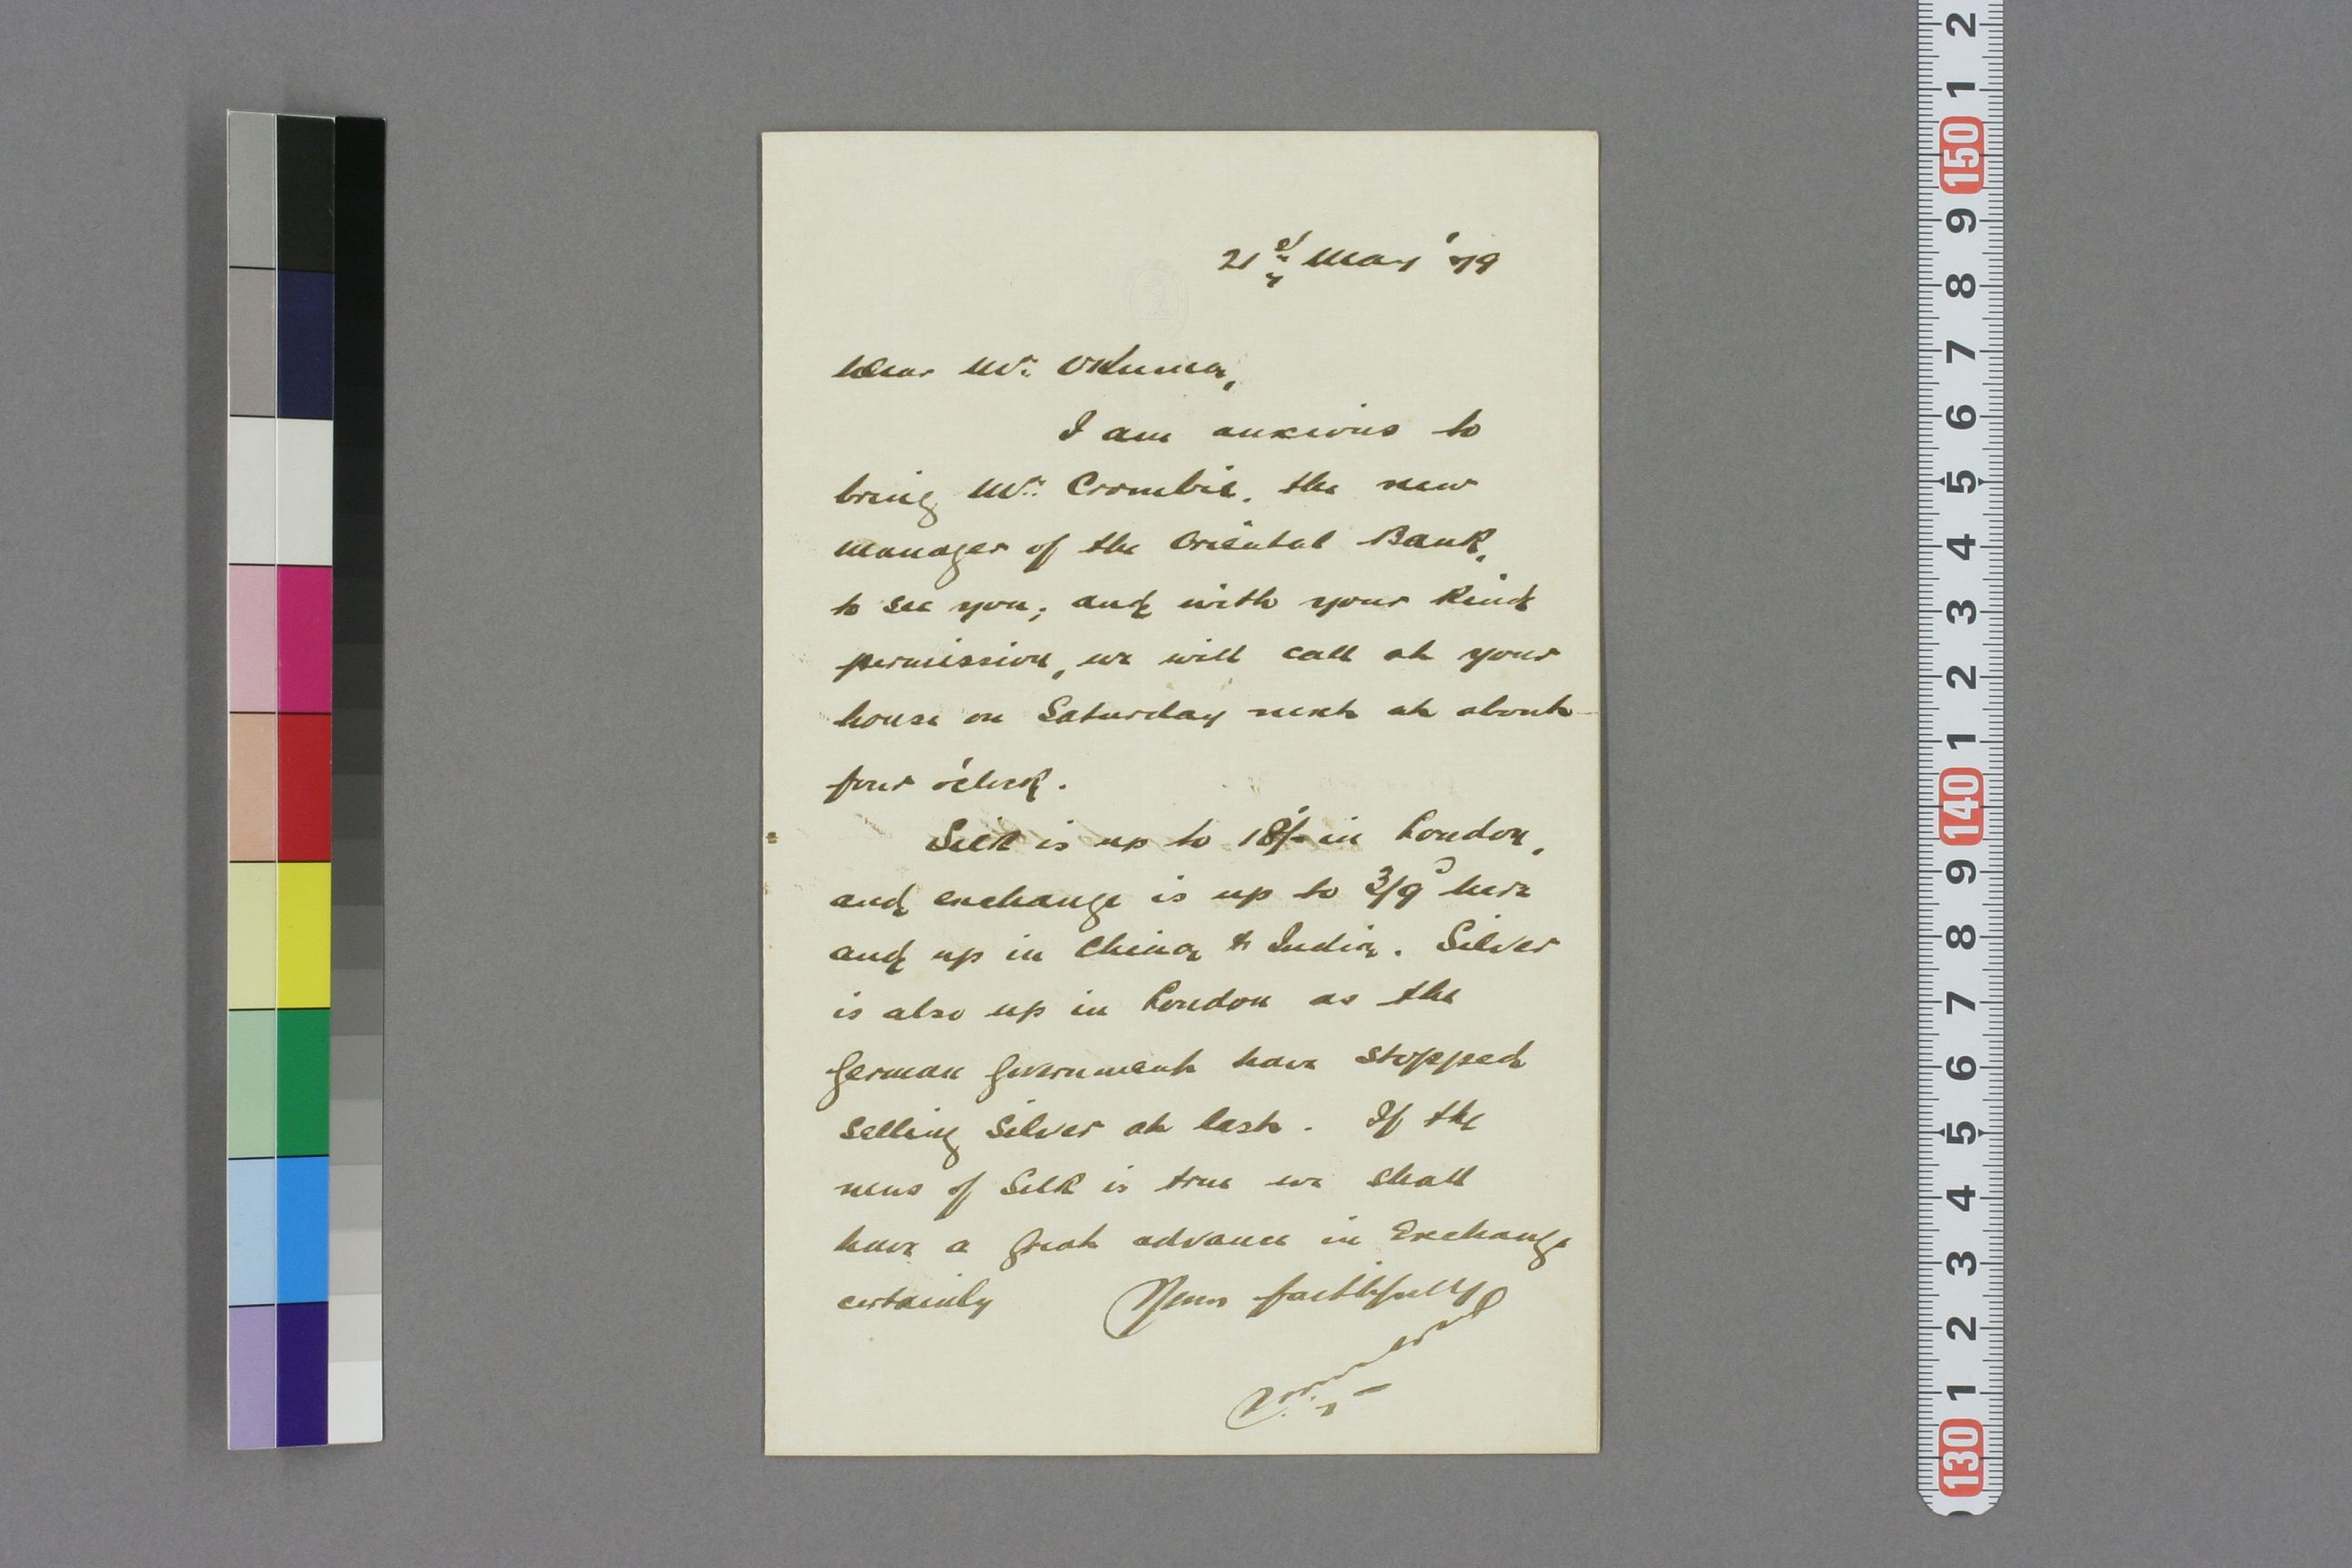 21st May '79
Dear Mr. Okuma,
I am anxious to
bring Mr. Crombie, the new
manager of the Oriental Bank,
to see you; and with your kind
permission, we will call at your
house on Saturday next at about
four o'clock.
Silk is up to 18/- in London,
and exchange is up to 3/9d here
and up in China & India. Silver
is also up in London as the
German Government have stopped
selling silver at last. If the
news of Silk is true we shall
have a great advance in Exchange
certainly Yours faithfully
2
1
150
9
8
7
6
5
4
3
2
1
140
9
8
7
6
5
4
3
2
1
130